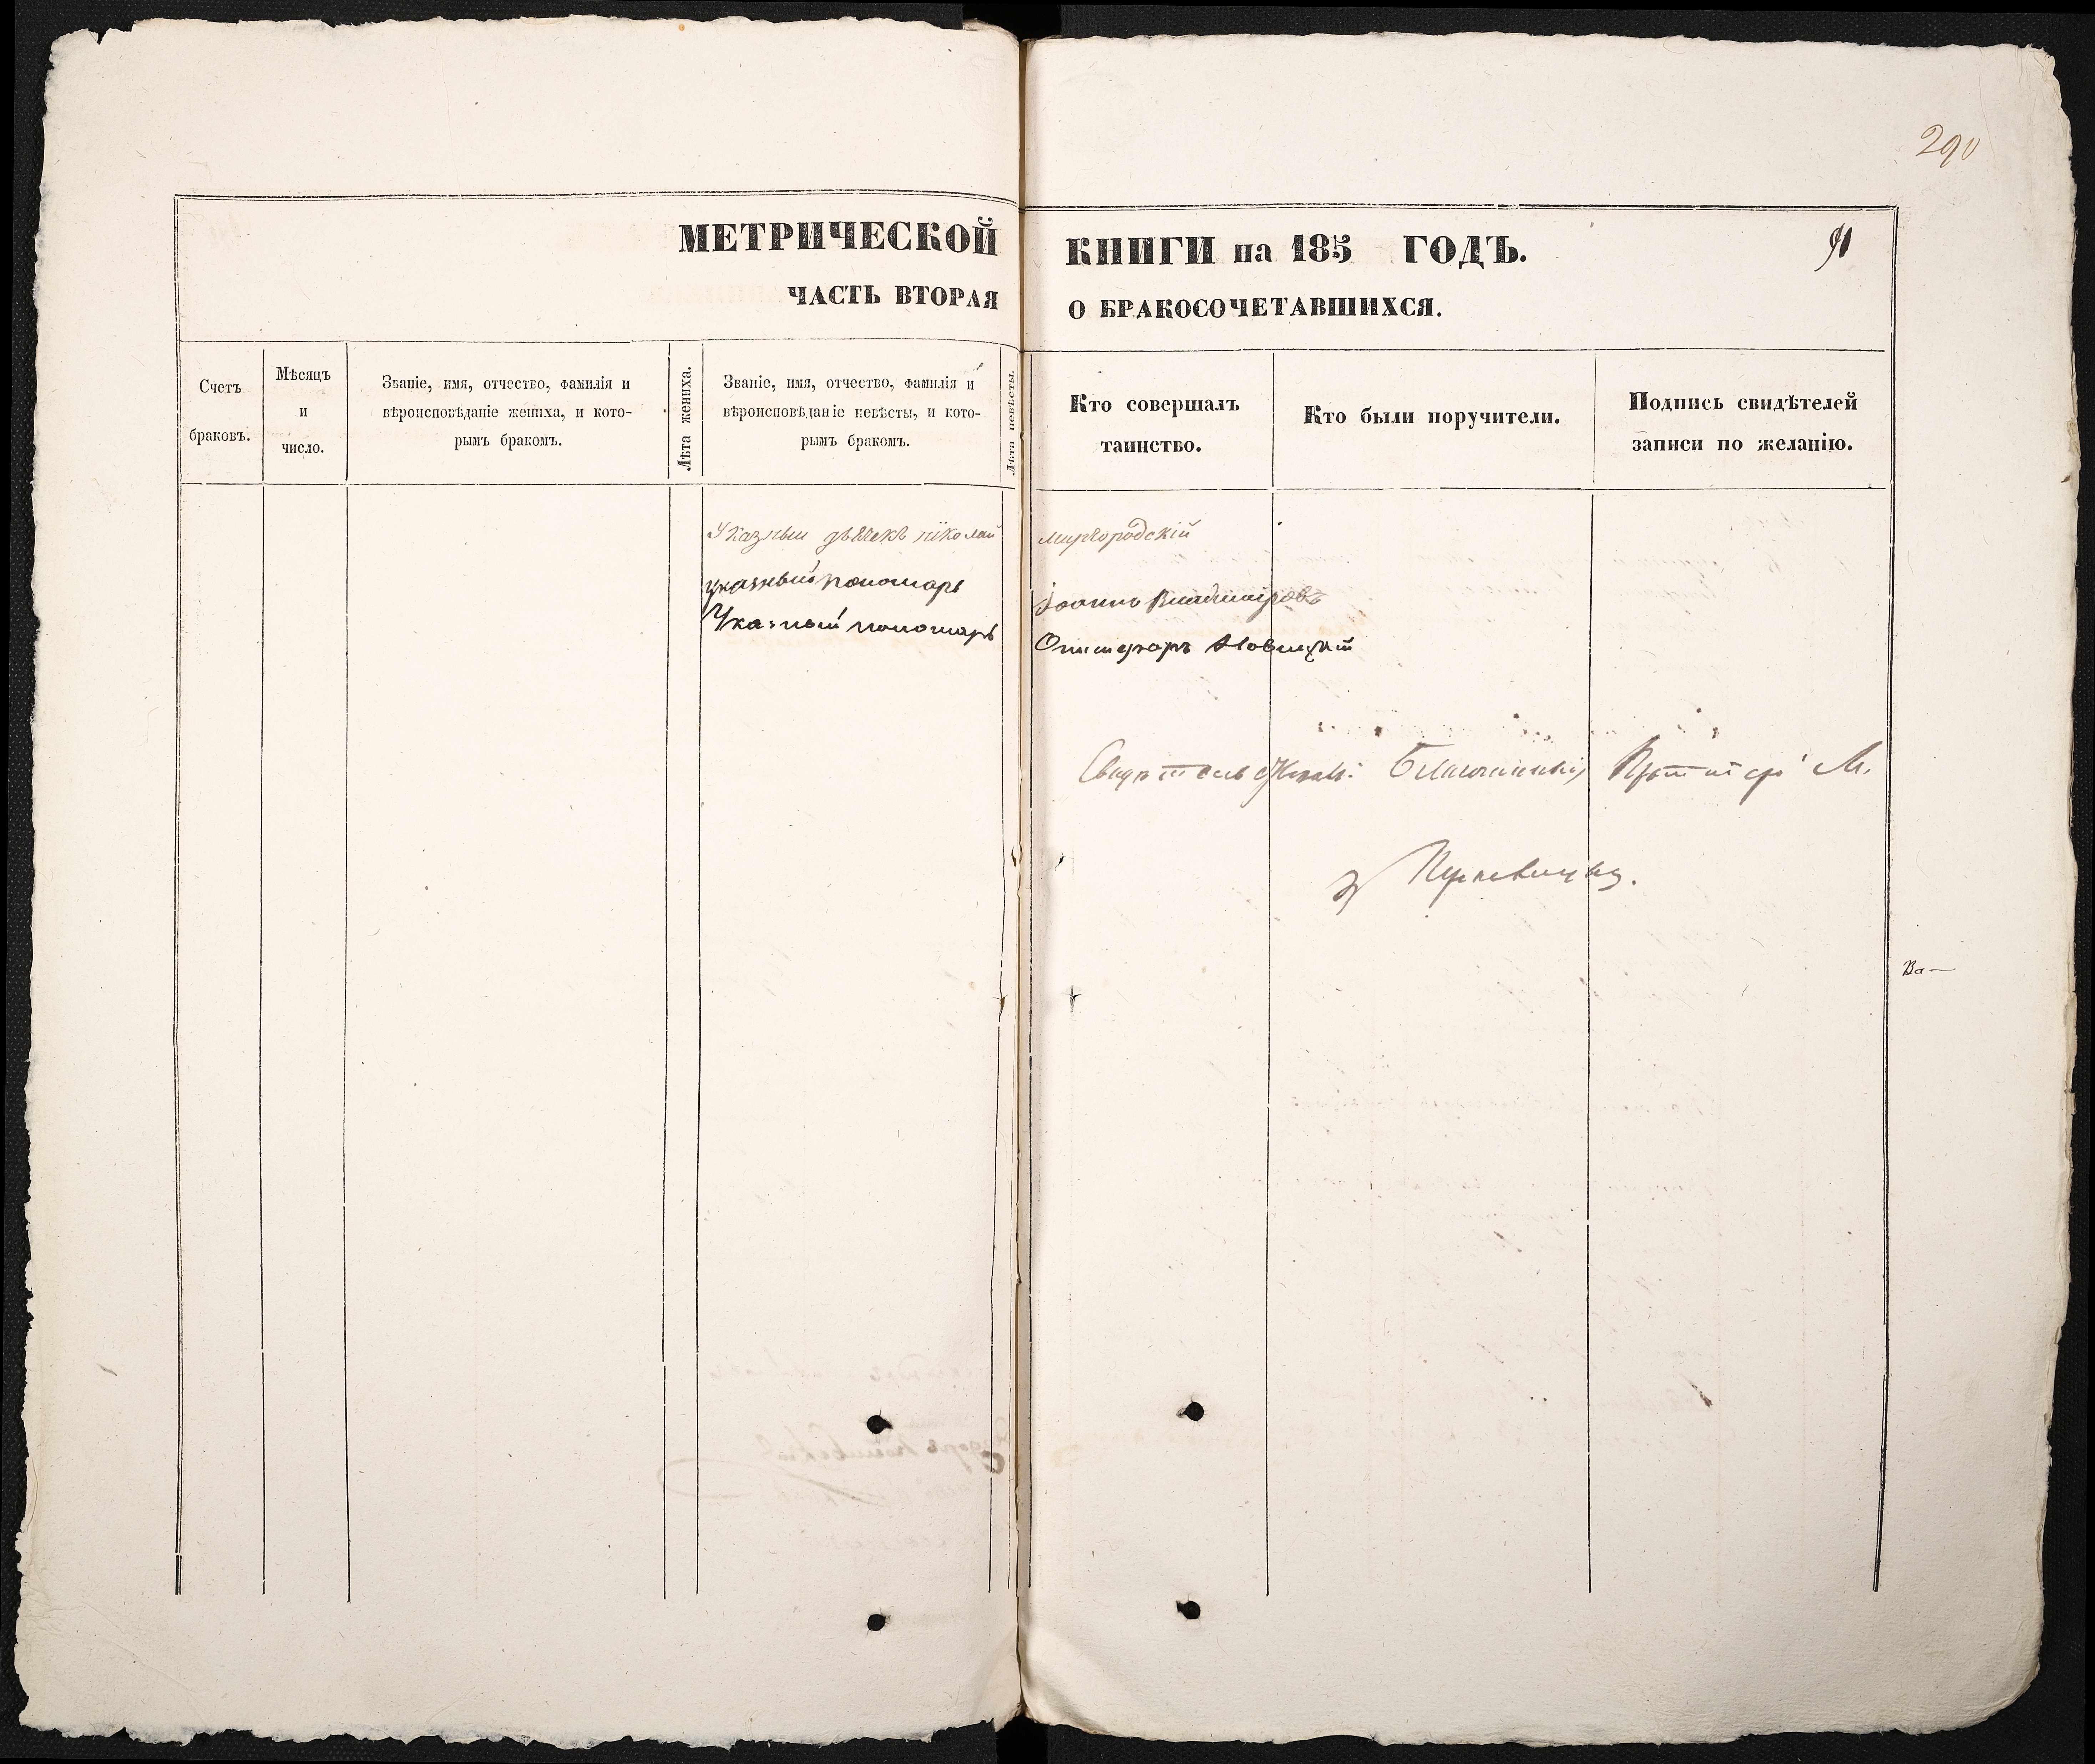 290
МЕТРИЧЕСКОЙ КНИГИ на 185 ГОДЪ.
ЧАСТЬ ВТОРАЯ О БРАКОСОЧЕТАВШИХСЯ.
Счетъ
браковъ.
Мѣсяцъ
и
число.
Званіе, имя, отчество, фамилія и
вѣроисповѣданіе жениха, и кото-
рымъ бракомъ.
Лѣта жениха.
Званіе, имя, отчество, фамилія и
вѣроисповѣданіе невѣсты, и кото-
рымъ бракомъ.
Лѣта невѣсты.
Кто совершалъ
таинство.
Кто были поручители.
Подпись свидѣтелей
записи по желанію.
Указный дьячекъ николай миргородскій
указный пономарь Іоаннъ Владиміровъ
Указный пономарь Новицкій
Во